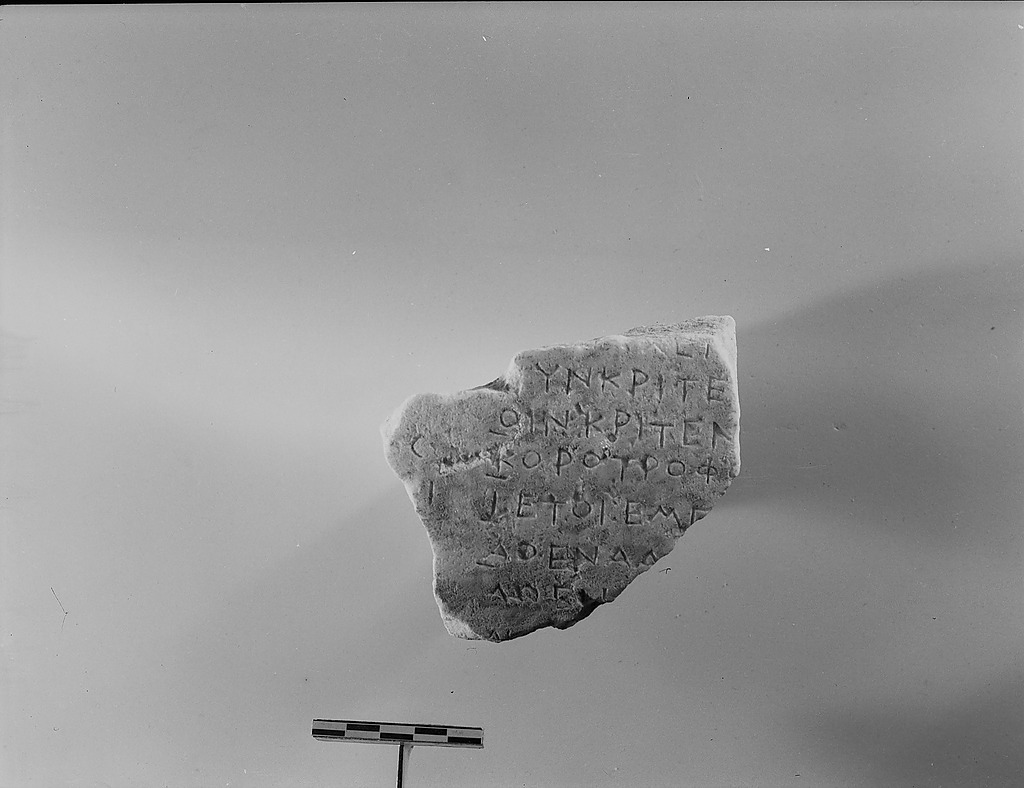 ΥΝΚΡΙΤΕ
ΟΙΝΚΡΙΤΕΝ
ΚΟΡΟΤΡΟΦ
ΕΤΟΙΕΜΕ
ΑΘΕΝΑΑ
ΑΘΕ